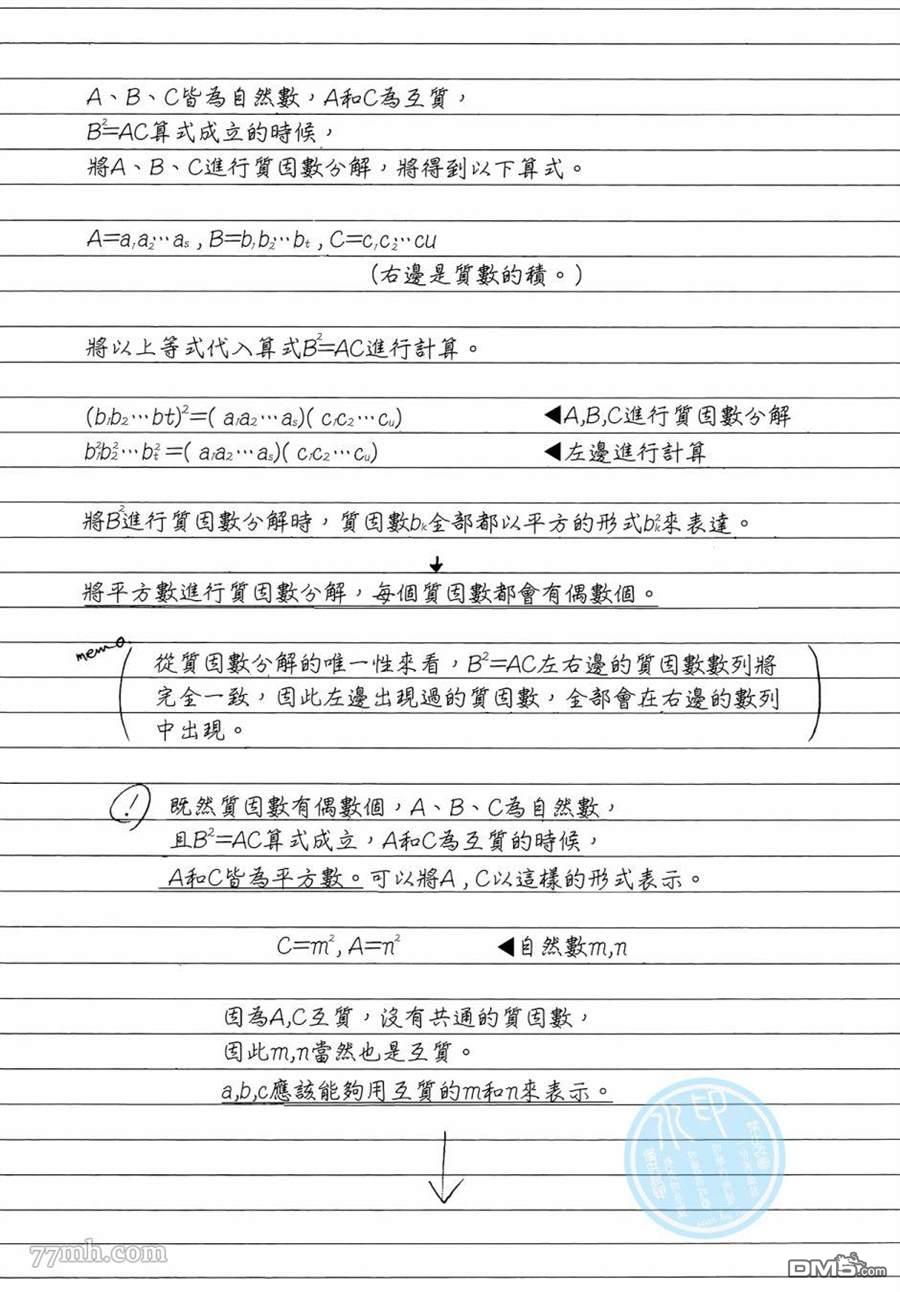 A、B、C皆為自然數，A和C為互質，
B²=AC算式成立的時候，
將A、B、C進行質因數分解，將得到以下算式。
A=a₁a₂…aₛ , B=b₁b₂…bₜ , C=c₁c₂…cu
(右邊是質數的積。)
將以上等式代入算式B²=AC進行計算。
(b₁b₂…bt)²=( a₁a₂…aₛ)( c₁c₂…cᵤ) ◀A,B,C進行質因數分解
b₁²b₂²…bₜ²=( a₁a₂…aₛ)( c₁c₂…cᵤ) ◀左邊進行計算
將B²進行質因數分解時，質因數bₖ全部都以平方的形式bₖ²來表達。
↓
將平方數進行質因數分解，每個質因數都會有偶數個。
memo.
(從質因數分解的唯一性來看，B²=AC左右邊的質因數數列將
完全一致，因此左邊出現過的質因數，全部會在右邊的數列
中出現。)
! 既然質因數有偶數個，A、B、C為自然數，
且B²=AC算式成立，A和C為互質的時候，
A和C皆為平方數。可以將A , C以這樣的形式表示。
C=m², A=n² ◀自然數m,n
因為A,C互質，沒有共通的質因數，
因此m,n當然也是互質。
a,b,c應該能夠用互質的m和n來表示。
↓
水印
77mh.com
DM5.com